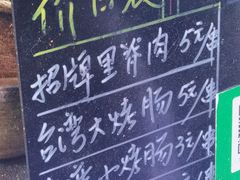 招牌里脊肉 5元/串
台湾大烤肠 5元/串
大烤肠 3元/串